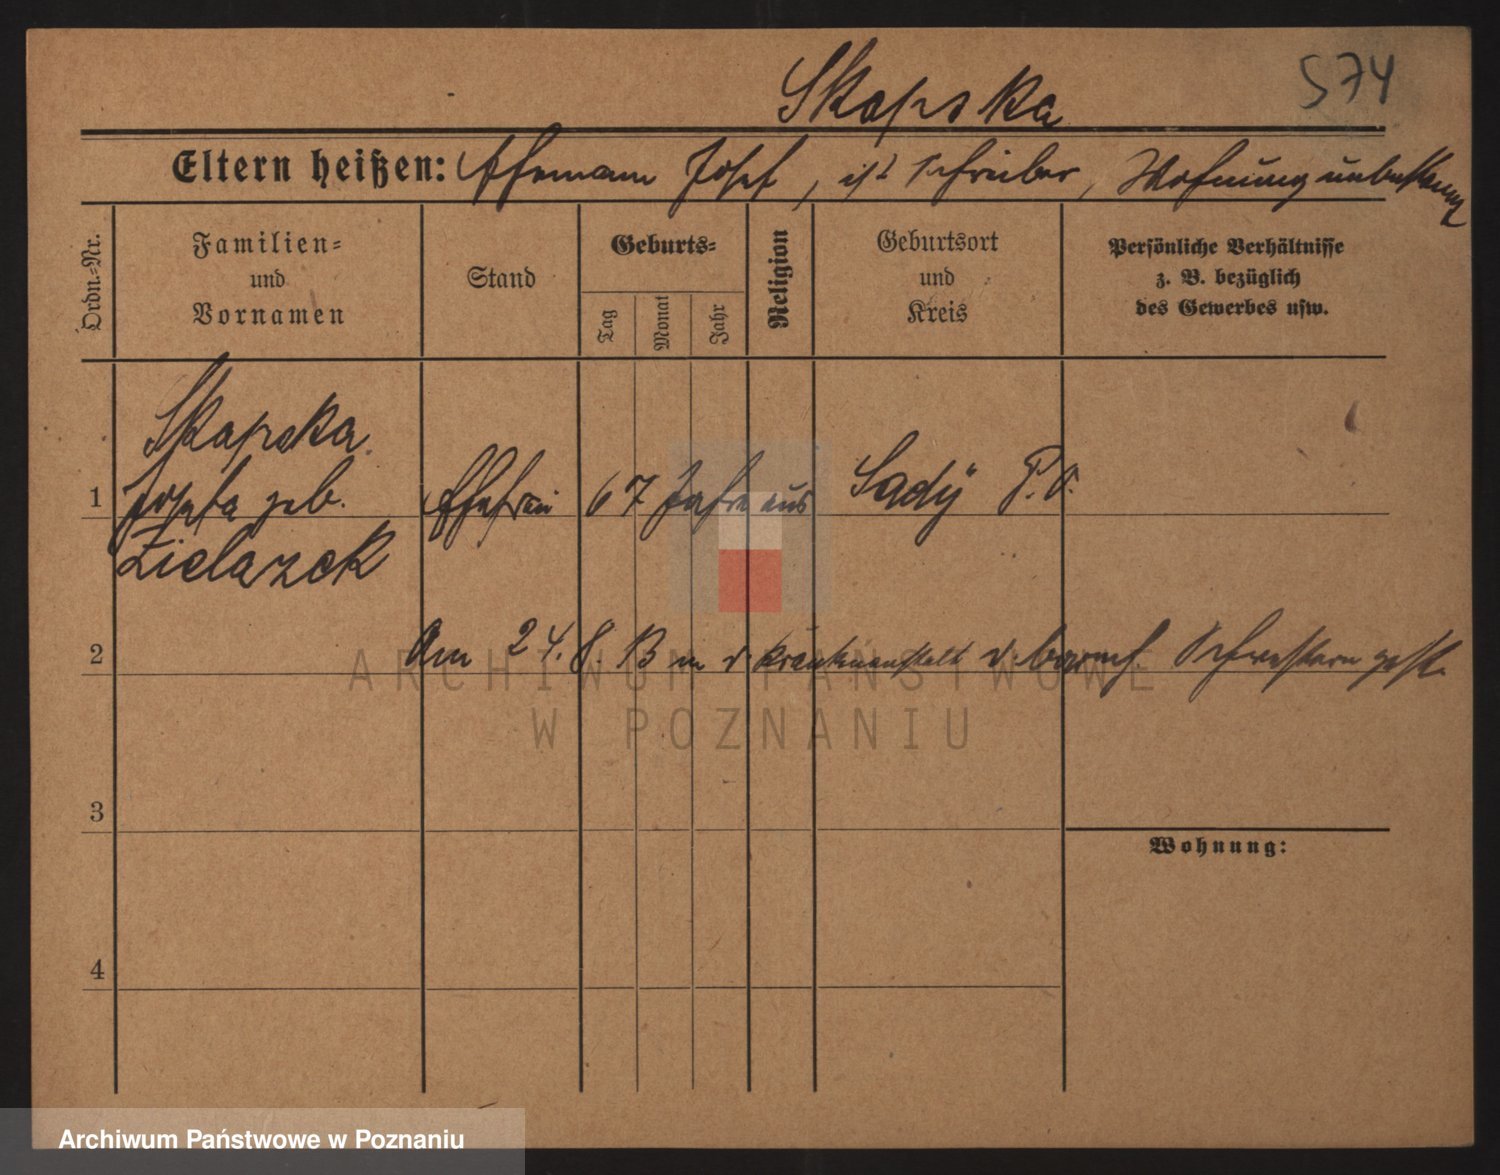 Skapska 574
Eltern heißen: Ehemann Josef, ist Schreiber, Wohnung unbekannt
Ordn.-Nr.
Familien- und Vornamen
Stand
Geburts-
Tag
Monat
Jahr
Religion
Geburtsort und Kreis
Persönliche Verhältnisse z. B. bezüglich des Gewerbes usw.
Skapska
1 Josefa geb. Ehefrau 67 Jahre aus Sady P.O.
Zielazek
2 Am 24. 8. 13 in d. Krankenanstalt d. barmh. Schwestern gest.
3
Wohnung:
4
ARCHIWUM PAŃSTWOWE
W POZNANIU
Archiwum Państwowe w Poznaniu